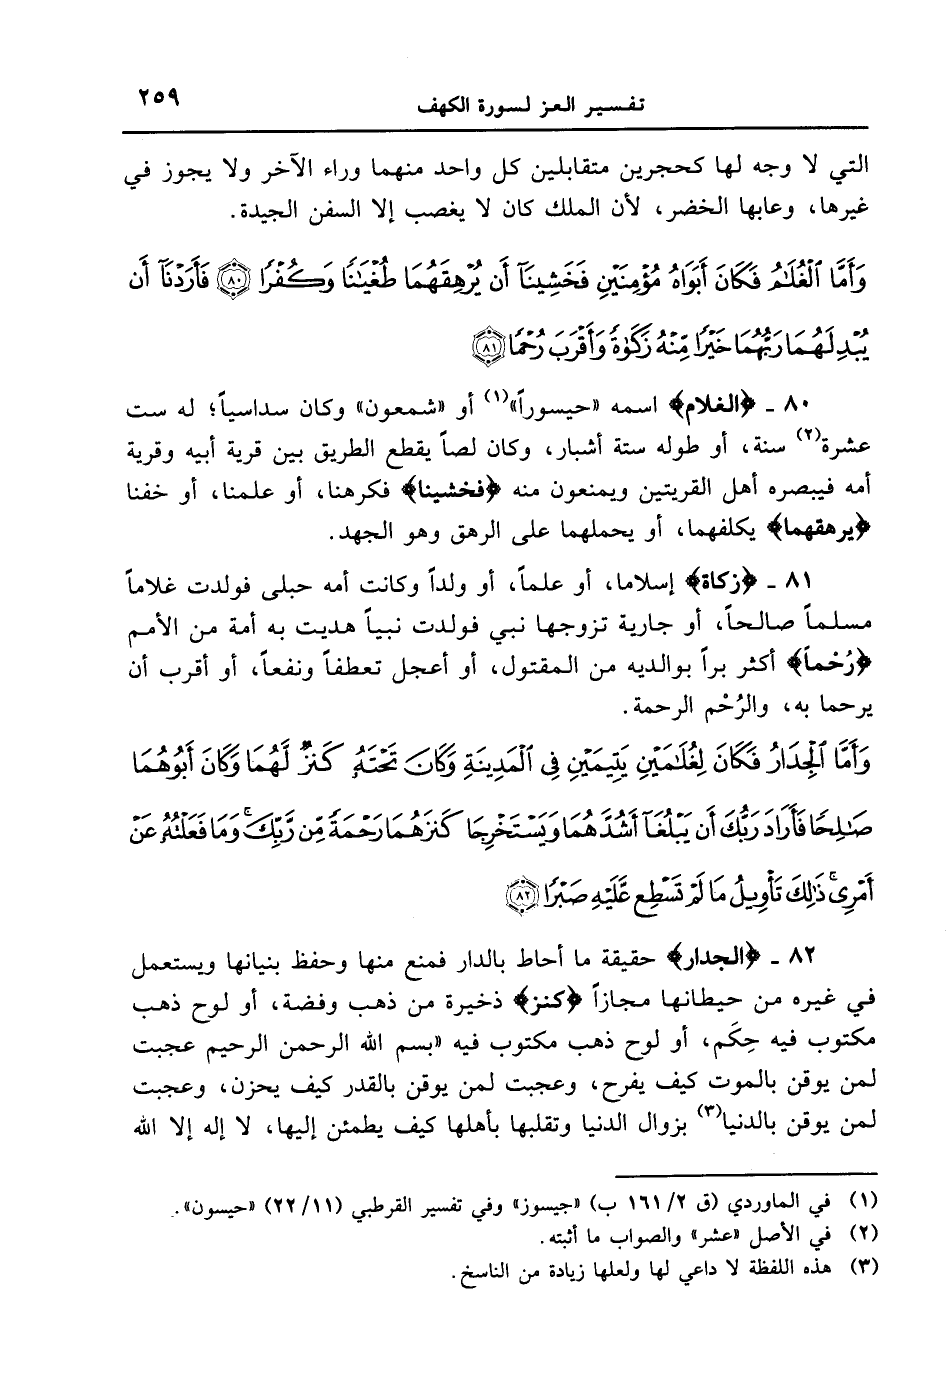 تفسير العز لسورة الكهف ٢٥٩
التي لا وجه لها كحجرين متقابلين كل واحد منهما وراء الآخر ولا يجوز في
غيرها، وعابها الخضر، لأن الملك كان لا يغصب إلا السفن الجيدة.
وَأَمَّا ٱلْغُلَٰمُ فَكَانَ أَبَوَاهُ مُؤْمِنَيْنِ فَخَشِينَآ أَن يُرْهِقَهُمَا طُغْيَٰنًا وَكُفْرًا ﴿٨٠﴾ فَأَرَدْنَآ أَن
يُبْدِلَهُمَا رَبُّهُمَا خَيْرًا مِّنْهُ زَكَوٰةً وَأَقْرَبَ رُحْمًا ﴿٨١﴾
٨٠ ـ ﴿الغلام﴾ اسمه «حيسوراً»(١) أو «شمعون» وكان سداسياً؛ له ست
عشرة(٢) سنة، أو طوله ستة أشبار، وكان لصاً يقطع الطريق بين قرية أبيه وقرية
أمه فيبصره أهل القريتين ويمنعون منه ﴿فخشينا﴾ فكرهنا، أو علمنا، أو خفنا
﴿يرهقهما﴾ يكلفهما، أو يحملهما على الرهق وهو الجهد.
٨١ ـ ﴿زكاة﴾ إسلاما، أو علماً، أو ولداً وكانت أمه حبلى فولدت غلاماً
مسلماً صالحاً، أو جارية تزوجها نبي فولدت نبياً هديت به أمة من الأمم
﴿رُحْماً﴾ أكثر براً بوالديه من المقتول، أو أعجل تعطفاً ونفعاً، أو أقرب أن
يرحما به، والرُحْم الرحمة.
وَأَمَّا ٱلْجِدَارُ فَكَانَ لِغُلَٰمَيْنِ يَتِيمَيْنِ فِى ٱلْمَدِينَةِ وَكَانَ تَحْتَهُۥ كَنزٌ لَّهُمَا وَكَانَ أَبُوهُمَا
صَٰلِحًا فَأَرَادَ رَبُّكَ أَن يَبْلُغَآ أَشُدَّهُمَا وَيَسْتَخْرِجَا كَنزَهُمَا رَحْمَةً مِّن رَّبِّكَ ۚ وَمَا فَعَلْتُهُۥ عَنْ
أَمْرِى ۚ ذَٰلِكَ تَأْوِيلُ مَا لَمْ تَسْطِع عَّلَيْهِ صَبْرًا ﴿٨٢﴾
٨٢ ـ ﴿الجدار﴾ حقيقة ما أحاط بالدار فمنع منها وحفظ بنيانها ويستعمل
في غيره من حيطانها مجازاً ﴿كنز﴾ ذخيرة من ذهب وفضة، أو لوح ذهب
مكتوب فيه حِكَم، أو لوح ذهب مكتوب فيه «بسم الله الرحمن الرحيم عجبت
لمن يوقن بالموت كيف يفرح، وعجبت لمن يوقن بالقدر كيف يحزن، وعجبت
لمن يوقن بالدنيا(٣) بزوال الدنيا وتقلبها بأهلها كيف يطمئن إليها، لا إله إلا الله
(١) في الماوردي (ق ٢/ ١٦١ ب) «جيسوز» وفي تفسير القرطبي (١١/ ٢٢) «حيسون».
(٢) في الأصل «عشر» والصواب ما أثبته.
(٣) هذه اللفظة لا داعي لها ولعلها زيادة من الناسخ.